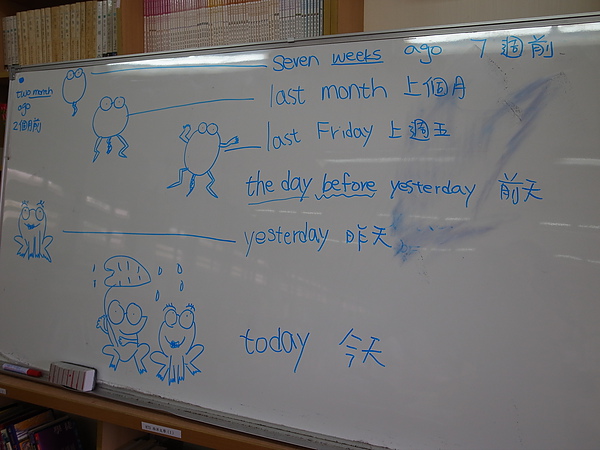 seven weeks ago 7週前
two month
ago
2個月前
last month 上個月
last Friday 上週五
the day before yesterday 前天
yesterday 昨天
today 今天